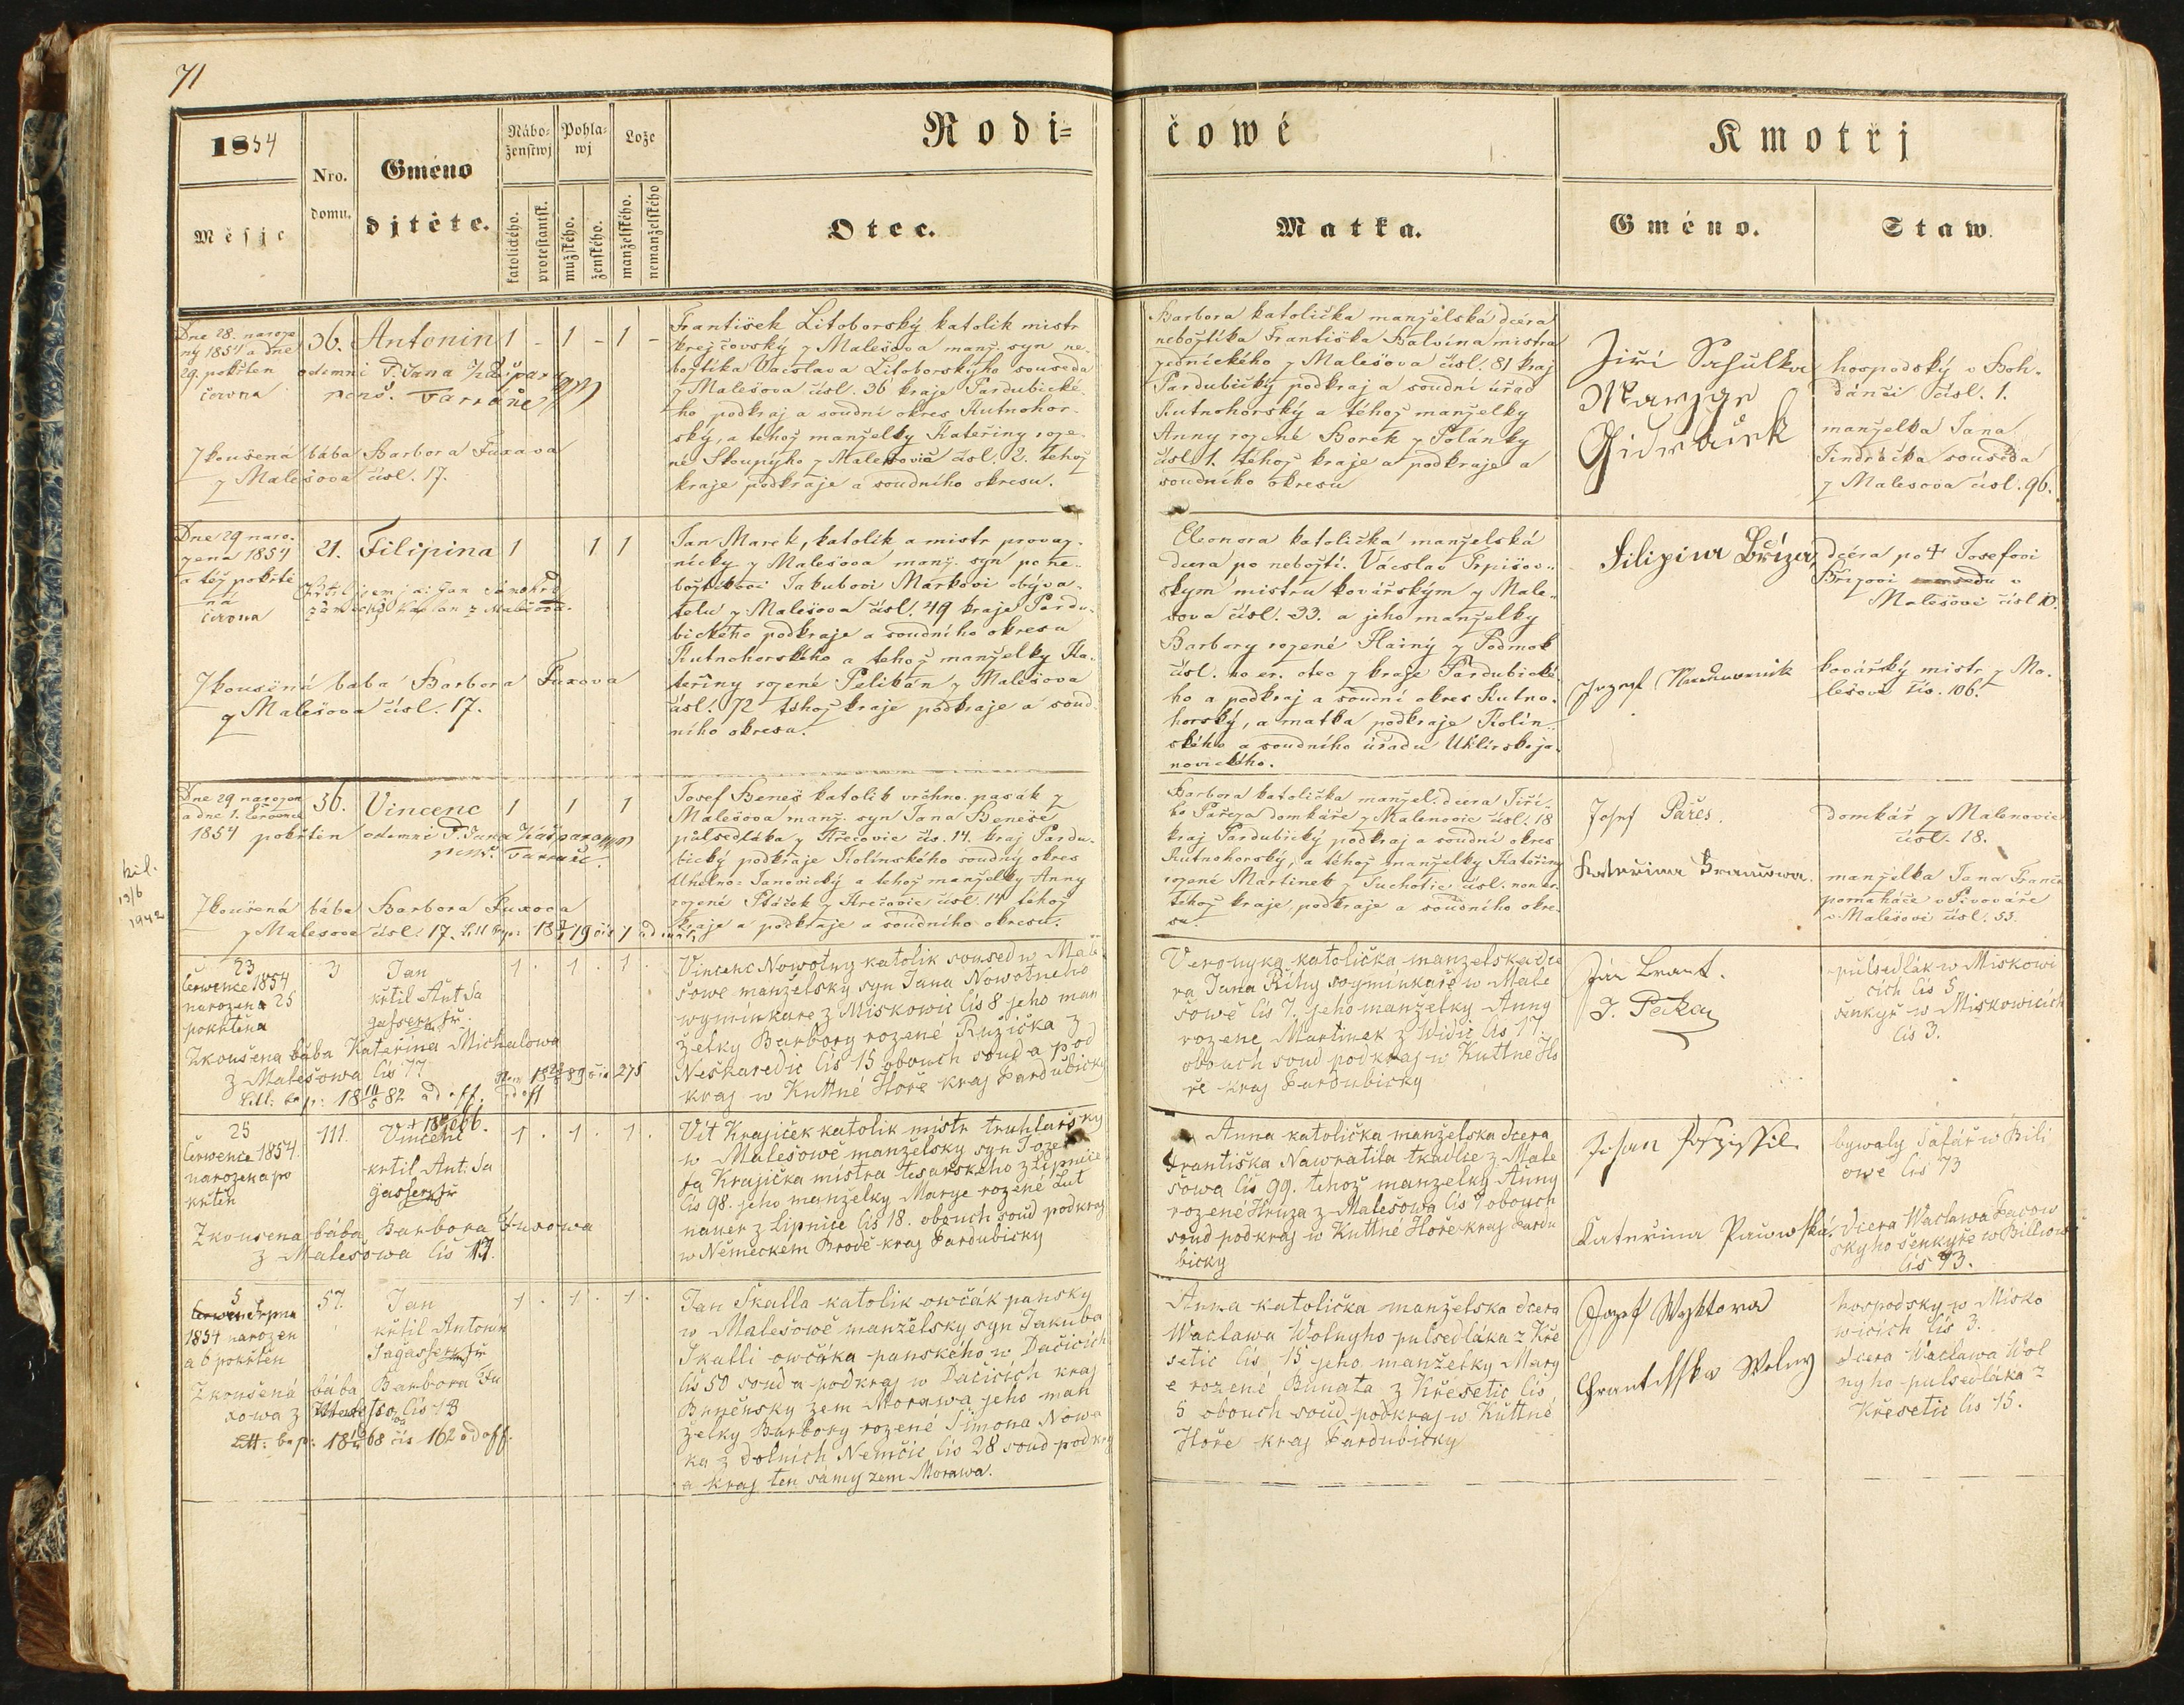 71
1854
Měsjc
Nro. domu.
Gméno djtěte.
Nábo-ženstwj
katolického.
protestantsk.
Pohla-wj
mužského.
ženského.
Lože
manželského.
nemanželského
Rodi=
čowé
Otec.
Matka.
Kmotřj
Gméno.
Staw.
Dne 28. naroze
ný 1854 a dne
29. pokřten
června
36.
Antonin
1 - 1 - 1 -
odemně P. Jana
Zkoušená bába Barbora Fuxova
z Malešova čísl. 17.
František Litoborský katolik mistr
krejčovský z Malešova manž. syn ne-
božtíka Vácslava Litoborskýho souseda
z Malešova čísl. 36 kraje Pardubické-
ho, podkraj a soudní okres Kutnohor-
ský, a téhož manželky Kateřiny roze-
né Skoupýho z Malešovic čísl. 2. téhož
kraje podkraje a soudního okresu.
Barbora katolička manželská dcéra
nebožtíka Františka Balvína mistra
zednického z Malešova čísl. 81 kraj
Pardubický podkraj a soudní úřad
Kutnohorský a téhož manželky
Anny rozené Borek z Polánky
čísl. 1. téhož kraje a podkraje a
soudního okresu
Jiří
hospodský v Boh-
dánči čísl. 1.
manželka Jana
Jindráčka souseda
z Malešova čísl. 96.
Dne 29 naro-
zena 1854
a též pokřtě
ná
června
21.
Filipina
1 1 1
Křtil jsem ja: Jan
zámecký kaplan z Malešova.
Zkoušená bába Barbora Fuxova
z Malešova čísl. 17.
Jan Marek, katolík a mistr provaz-
nický z Malešova manž. syn po ne-
božtíkovi Jakubovi Markovi obýva-
telu z Malešova čísl. 49 kraje Pardu-
bického podkraje a soudního okresu
Kutnohorského a téhož manželky Ka-
teřiny rozené Pelikán z Malešova
čísl. 72 téhož kraje podkraje a soud-
ního okresu.
Eleonora katolička manželská
dcera po neboští. Vácslav Trpišov-
ským mistru kovářským z Male-
šova čísl. 33. a jeho manželky
Barbory rozené Hainý z Podmok
čísl. no er. otec z kraje Pardubické-
ho a podkraj a soudní okres Kutno-
horský, a matka podkraje Kolín-
ského a soudního úřadu Uhlířskoja-
novického.
Filipina Bříza,
dcéra po † Josefovi
Břízovi v
Malešově čísl 10.
Jozef
kovářský mistr z Ma-
lešova čís. 106.
Dne 29 narozen
a dne 1. Července
1854 pokřtěn
36.
Vincenc
1 1 1
odemně P. Jana
Zkoušená bába Barbora Fuxova
z Malešova čísl. 17.
kil.
13/6
1942
Josef Beneš katolik vrchno. pasák z
Malešova manž. syn Jana Beneše
půlsedláka z Křečovic čís. 14. kraj Pardu-
bický podkraje Kolínského soudný okres
Uhelno-Janovický a téhož manželky Anny
rozené Ptáček z Křečovic čísl. 14 téhož
kraje a podkraje a soudního okresu.
Barbora katolička manžel. dcera Jiří-
ho Pařeza domkáře z Malenovic čísl. 18
kraj Pardubický podkraj a soudní okres
Kutnohorský, a téhož manželky Kateřiny
rozené Martinek z Suchotic čísl. non er.
téhož kraje, podkraje a soudního okre-
su.
Josef Pařes.
domkář z Malenovic
čísl. 18.
Kateřina
manželka Jana Franče
pomahače v Pivováře
v Malešově čísl. 53.
23
července 1854
narozen a 25
pokřtěn
3
Jan
křtil Ant Ja
1 . 1 . 1 .
Zkoušena bába Kateřina Michalowa
z Malešowa čís 77
Vincenc Nowotny katolik soused w Male
šowe manželsky syn Jana Nowotneho
wyminkare z Miskowic čís 8 jeho man
želky Barbory rozené Ružička z
Neškaredic čís 15 obouch soud a pod
kraj w Kuttné Hoře kraj Pardubicky
Veronyka katolička manzelska dce
ra Jana Říhy wyminkaře w Male
šowě čís 7. jeho manželky Anny
rozene Martinek z Widic čís 17.
obouch soud podkraj w Kuttné Ho
ře kraj Pardubicky
J. Pecka
půlsedlák w Miskowi
cich čís 5
šenkyř w Miskowicich
čís 3.
25
července 1854
narozen a po
křten
111.
Vincenc
křtil Ant. Ja
1 . 1 . 1 .
Zkousená bába Barbora Fuxowa
z Malešowa čís 17.
Vit Krajiček katolik mistr truhlařsky
w Malešowě manželsky syn Joze
fa Krajička mistra tesarskeho z Lipnice
čís 98. jeho manželky Marye rozené Lut
nauer z Lipnice čís 18. obouch soud podkraj
w Německem Brodě kraj Pardubicky
Anna katolička manželska dcera
Františka Nawratila tkadlce z Male
šowa čís 99. tehož manzelky Anny
rozené Hruza z Malešowa čís 7 obouch
soud podkraj w Kuttné Hoře kraj Pardu
bicky
Johan Pospissil
bywaly šafář w Bili
owe čís 73
Kateřina
dcera Waclawa Pacow
skyho šenkyře w Billiow
čís 73.
5
Srpna
1854 narozen
a 6 pokřtěn
57.
Jan
křtil Antonin
1 . 1 . 1 .
Zkoušená bába Barbora Fu
xowa z čís 13
Jan Skalla katolik owčák pansky
w Malešowě manželsky syn Jakuba
Skalli owčáka panského w Dačicich
čís 50 soud a podkraj w Dačicích kraj
Brněnsky zem Morawa jeho man
želky Barbory rozené Šimona Nowa
ka z Dolnich Němčic čís 28 soud podkraj
a kraj ten sámy zem Morawa.
Anna katolička manželska dcera
Waclawa Wolnyho pulsedláka z Kře
setic čís 15 jeho manželky Mary
e rozené Bunata z Křesetic čís
5 obouch soud podkraj w Kuttné
Hoře kraj Pardubicky
Jozef Wyktora
hospodsky w Misko
wicich čís 3.
Wolny
dcera Waclawa Wol
nyho pulsedláka z
Křesetic čís 15.